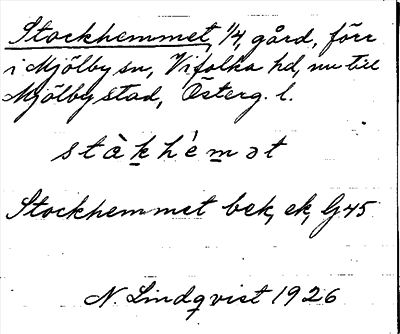 Stockhemmet, 1/4, gård, förr
i Mjölby sn, Vifolka hd, nu till
Mjölby stad, Österg. l.
stàkhèmət
Stockhemmet bek, ek, G 45
N. Lindqvist 1926